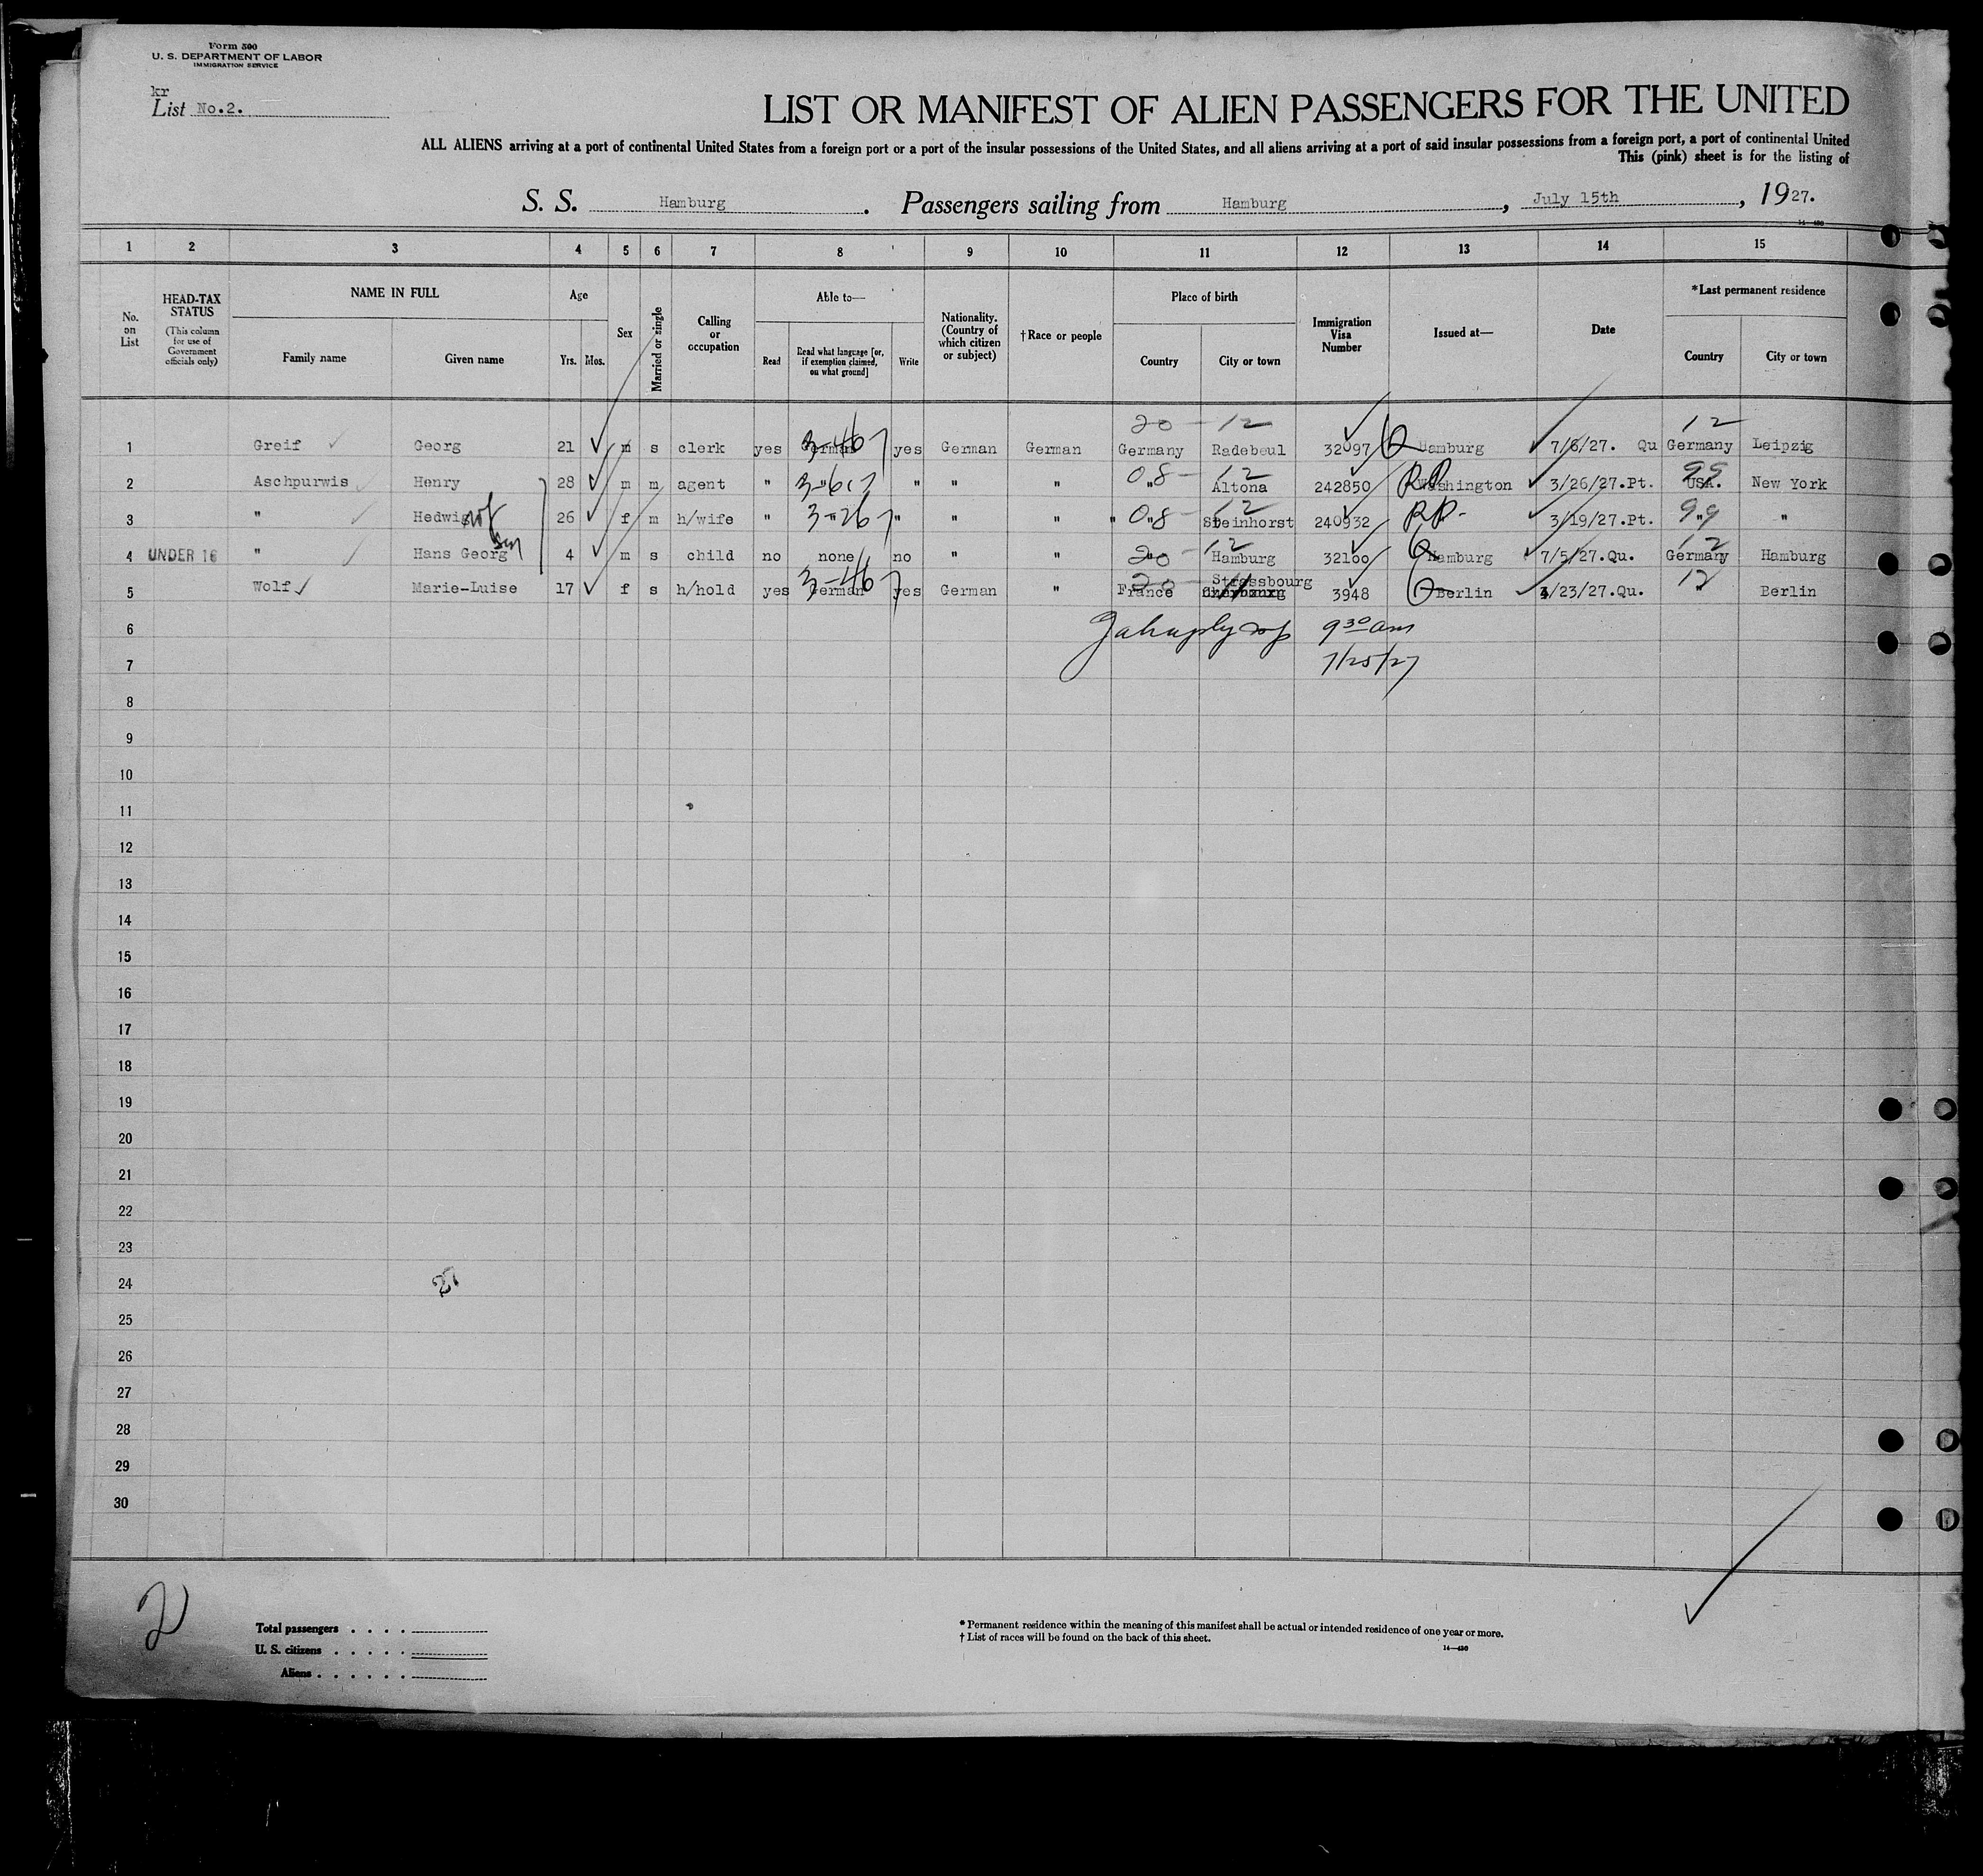 Form 500
U. S. DEPARTMENT OF LABOR
IMMIGRATION SERVICE
kr
List No.2.
LIST OR MANIFEST OF ALIEN PASSENGERS FOR THE UNITED
ALL ALIENS arriving at a port of continental United States from a foreign port or a port of the insular possessions of the United States, and all aliens arriving at a port of said insular possessions from a foreign port, a port of continental United
This (pink) sheet is for the listing of
S. S. Hamburg. Passengers sailing from Hamburg, July 15th, 1927.
14—430
1 2 3 4 5 6 7 8 9 10 11 12 13 14 15
No. on List
HEAD-TAX STATUS (This column for use of Government officials only)
NAME IN FULL
Family name Given name
Age
Yrs. Mos.
Sex
Married or single
Calling or occupation
Able to—
Read
Read what language [or, if exemption claimed, on what ground]
Write
Nationality. (Country of which citizen or subject)
† Race or people
Place of birth
Country City or town
Immigration Visa Number
Issued at—
Date
*Last permanent residence
Country City or town
20 - 12 12
1 Greif Georg 21 m s clerk yes German 3-467 yes German German Germany Radebeul 32097 Q Hamburg 7/6/27. Qu Germany Leipzig
2 Aschpurwis Henry 28 m m agent " " " " " 08 - " 12 Altona 242850 RP Washington 3/26/27.Pt. 99 USA. New York
3 " Hedwig wf 26 f m h/wife " 3-267 " " " " 08 - " 12 Steinhorst 240932 RP- 3/19/27.Pt. 99 " "
4 UNDER 16 " Hans Georg son 4 m s child no none no " " 20 - 12 Hamburg 32100 Q Hamburg 7/5/27.Qu. 12 Germany Hamburg
5 Wolf Marie-Luise 17 f s h/hold yes German 3-467 yes German " 20 - France Strassbourg 11 Cherbourg 3948 Q Berlin /23/27.Qu. 12 " Berlin
6 9 30 am
7 7/25/27
8
9
10
11
12
13
14
15
16
17
18
19
20
21
22
23
24
25
26
27
28
29
30
2
Total passengers . . . .
U. S. citizens . . . . .
Aliens . . . . . .
* Permanent residence within the meaning of this manifest shall be actual or intended residence of one year or more.
† List of races will be found on the back of this sheet.
14—430